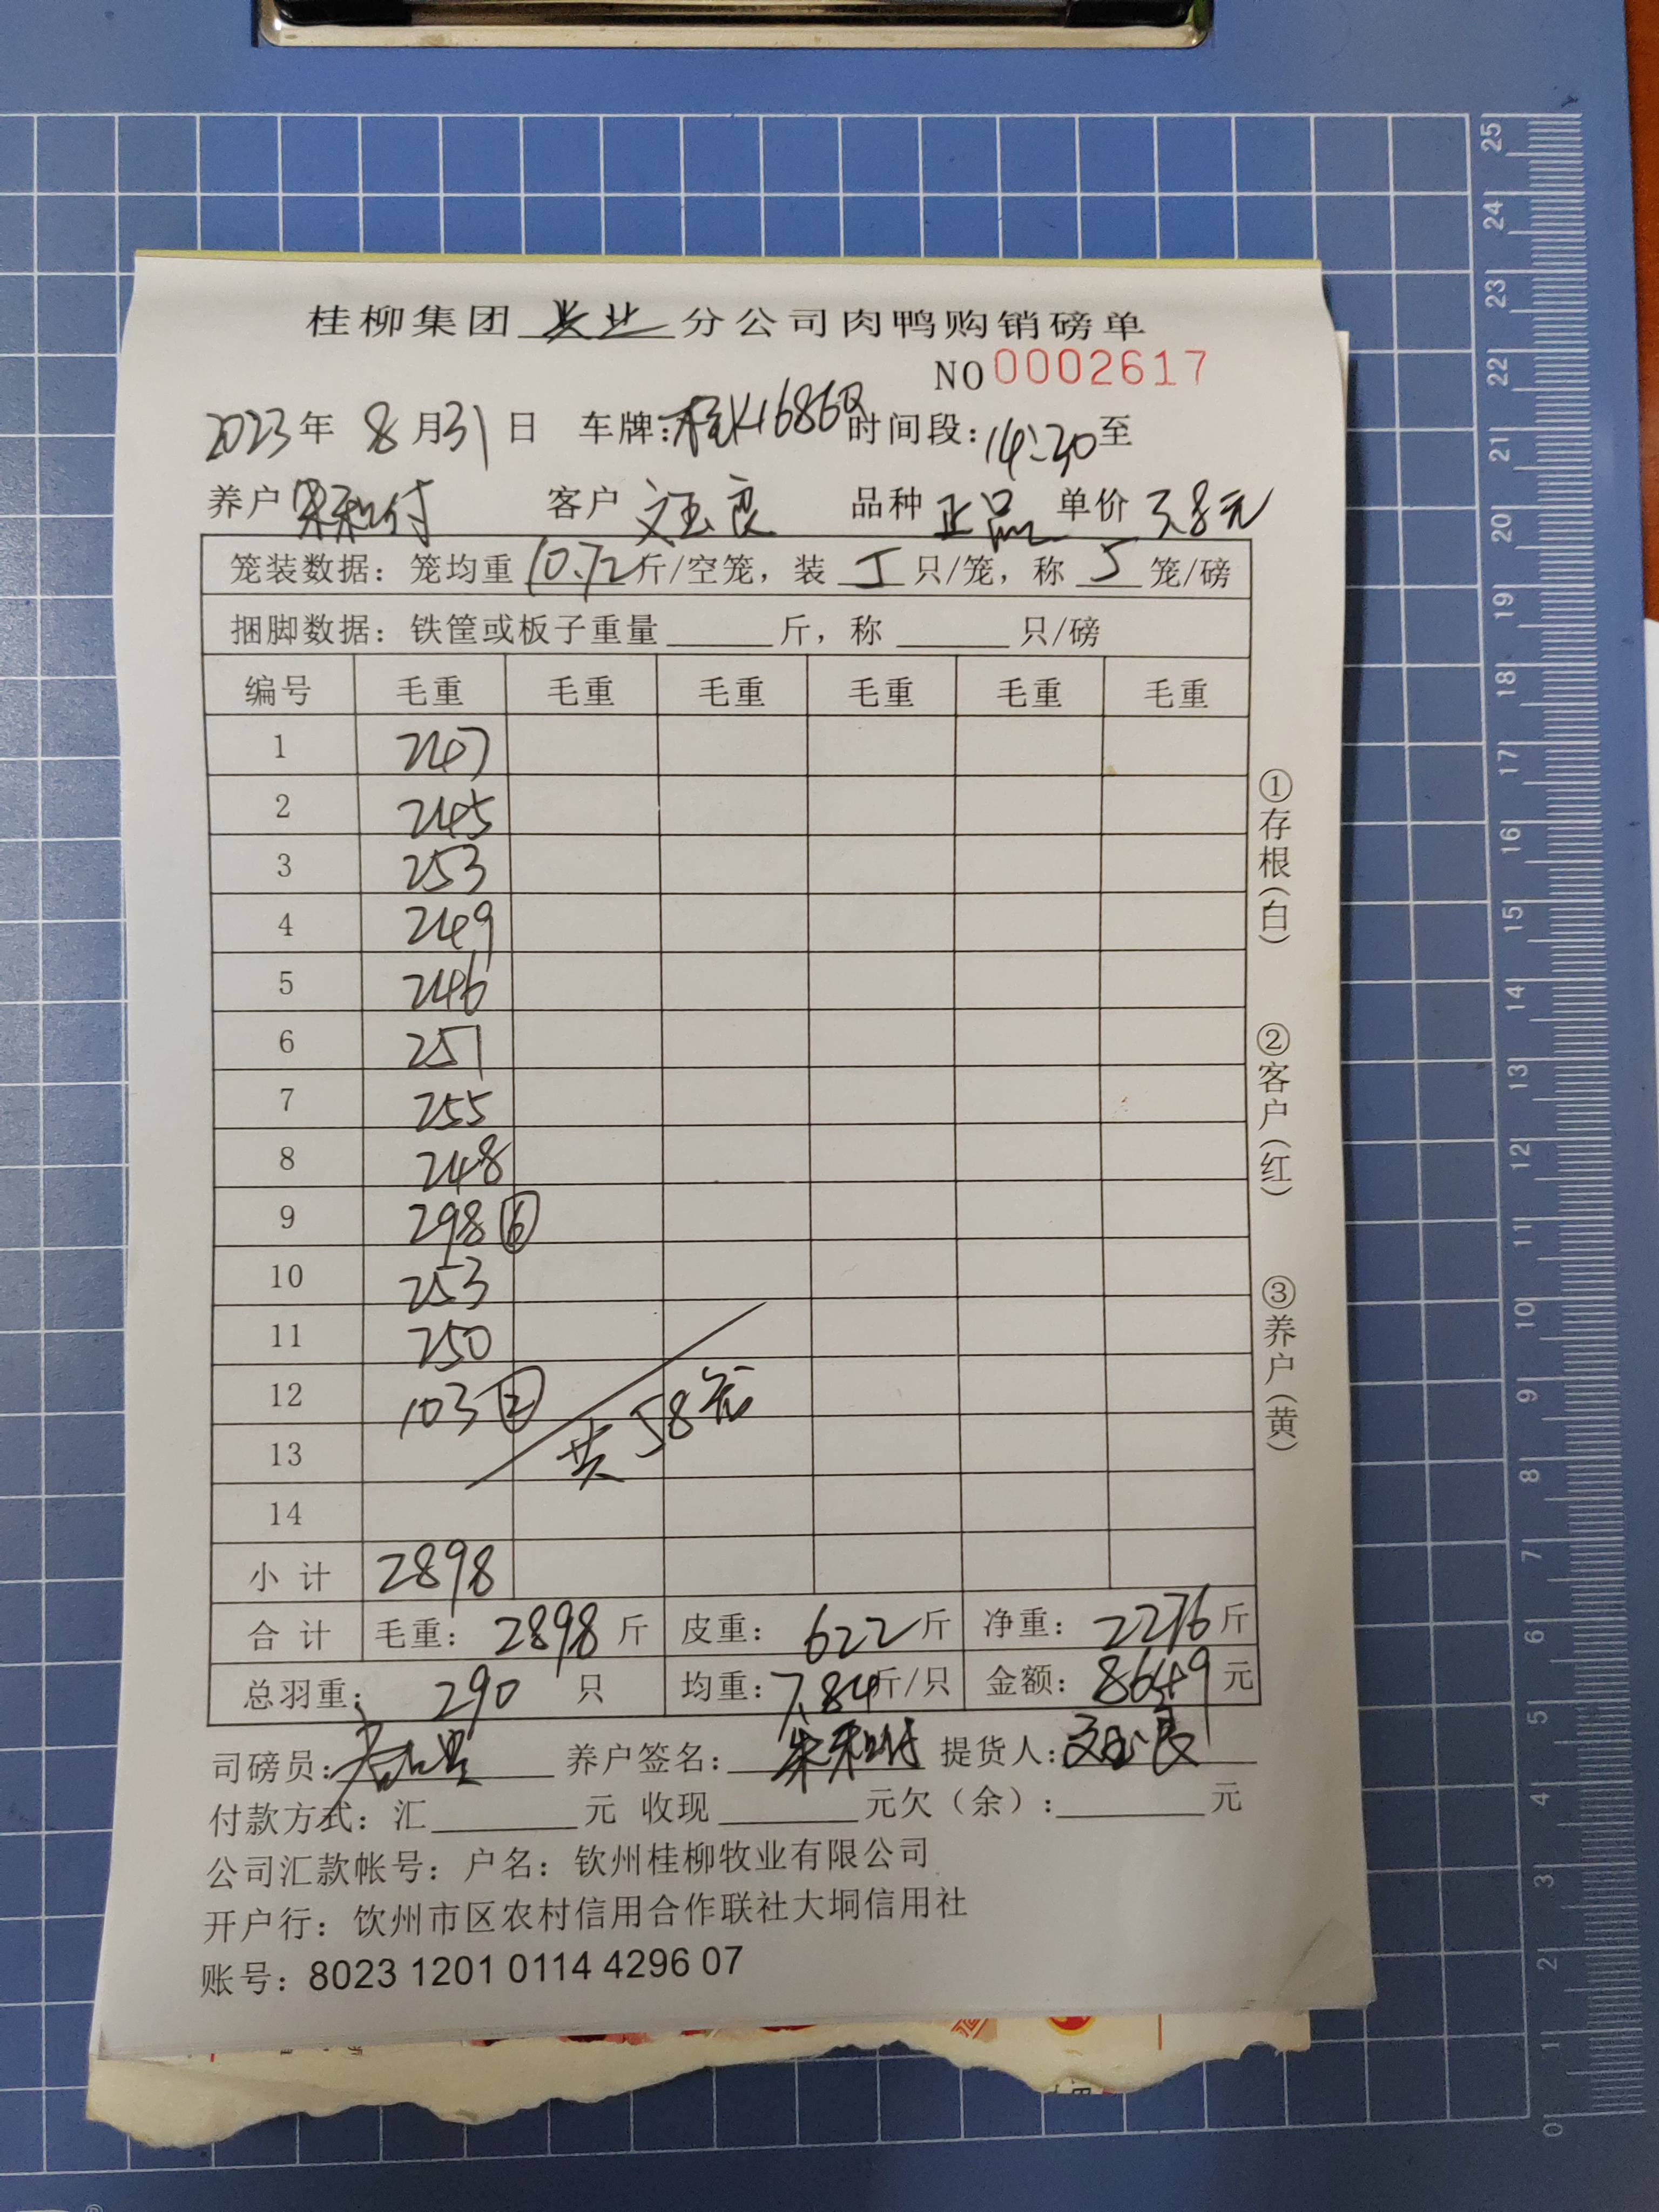 桂柳集团 兴业 分公司肉鸭购销磅单
NO 0002617
2023年 8月31日 车牌:桂K1686Q 时间段:14:30至
养户 朱和付 客户 文玉良 品种 正品 单价 3.8元
笼装数据: 笼均重 10.72 斤/空笼, 装 5 只/笼, 称 5 笼/磅
捆脚数据: 铁筐或板子重量______斤, 称______只/磅
编号 毛重 毛重 毛重 毛重 毛重 毛重
1 247
2 245
3 253
4 249
5 246
6 251
7 255
8 248
9 298 ⑥
10 253
11 250
12 103 ②
共 58 笼
13
14
小计 2898
合计 毛重: 2898 斤 皮重: 622 斤 净重: 2276 斤
总羽重: 290 只 均重: 7.84 斤/只 金额: 8649 元
司磅员: 养户签名: 朱和付 提货人: 文玉良
付款方式: 汇______元 收现______元欠(余):______元
公司汇款帐号: 户名: 钦州桂柳牧业有限公司
开户行: 钦州市区农村信用合作联社大垌信用社
账号: 8023 1201 0114 4296 07
①存根(白)
②客户(红)
③养户(黄)
25
24
23
22
21
20
19
18
17
16
15
14
13
12
11
10
9
8
7
6
5
4
3
2
1
0